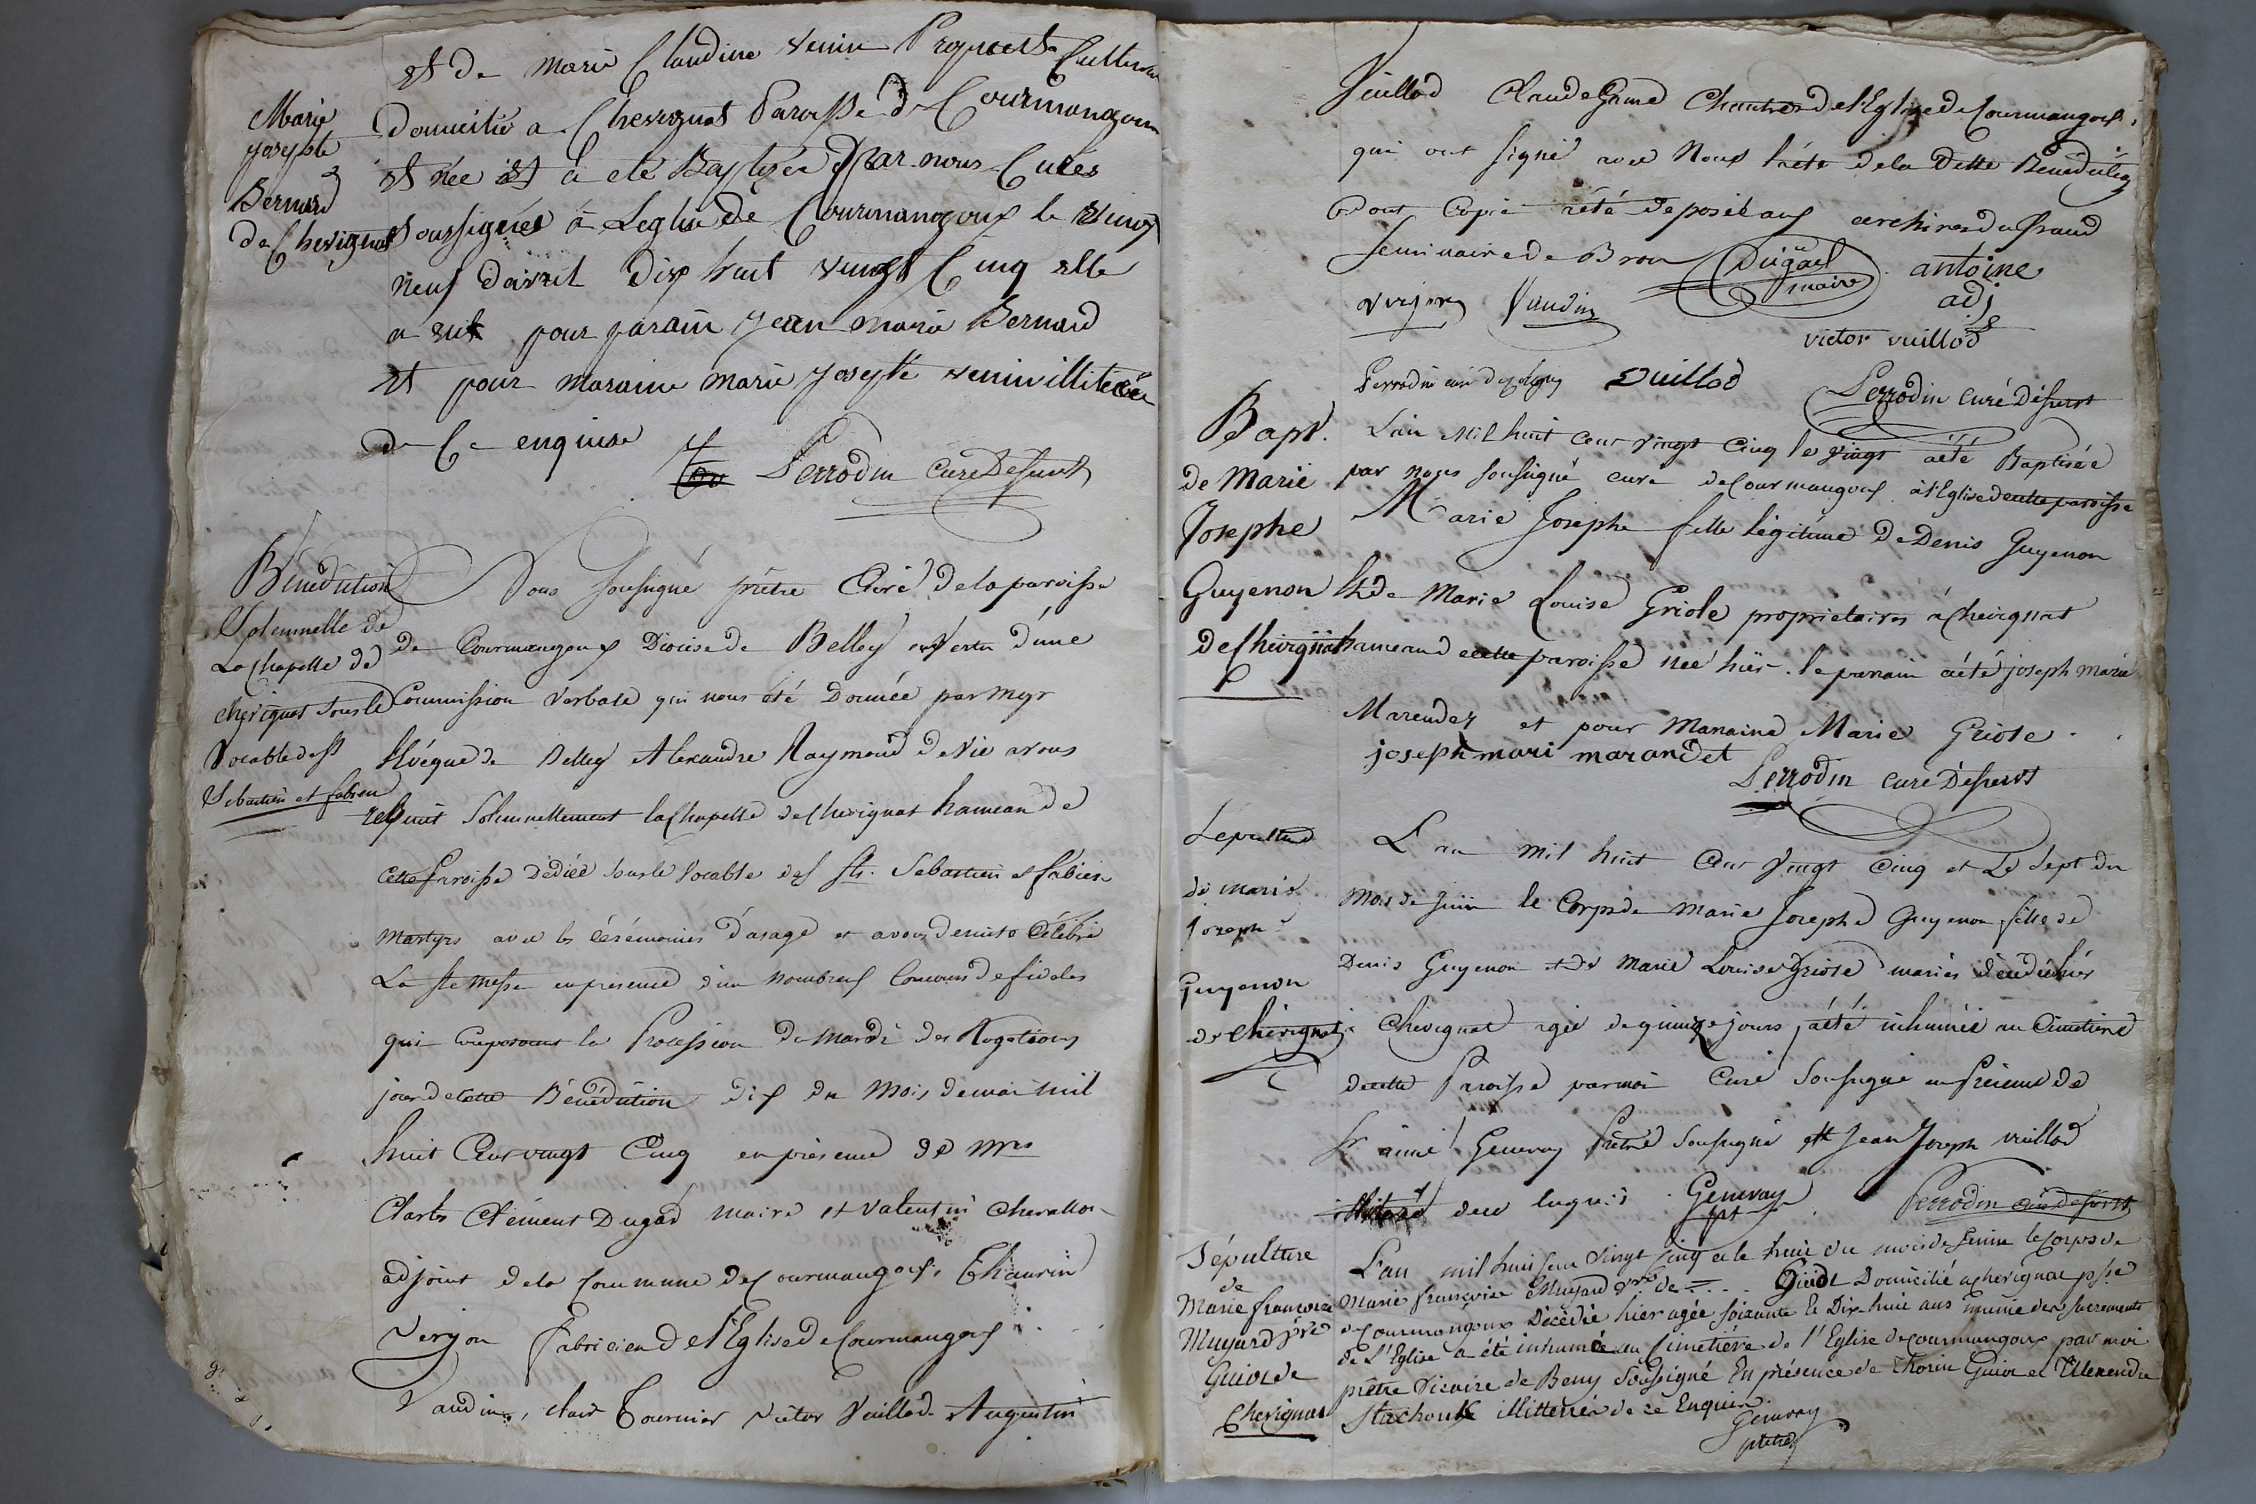 Marie
josephte
Bernard
de Chevignat
et de marie Claudine venin Propriete Cultivateur
Domicilié a Chevignat Paroisse de Courmangoux
et née et a eté Baptisée Par nous Curés
soussignés a Leglise de Courmangoux le vingt
neuf davril dix huit vingt Cinq elle
a eut pour parain jean marie Bernard
et pour maraine marie josephte venin illiterées
de Ce enquise
Perrodin Curé Desservt
Bénédiction
Solemnelle de
La Chapelle de
chevignat sous le
Vocable de SS
Sebastien et fabien
Nous soussigné prêtre Curé de la paroisse
de Courmangoux Diocise de Belley en Vertu d'une
Commission verbale qui nous été Donnée par mgr
l'Evêque de Belley Alexandre Raymond Devie avons
Solemnellement la Chapelle de Chevignat hameau de
cette Paroisse Dédiée sous le Vocable des sts. Sebastien et fabien
Martyrs avec les cérémonies d'usage et avons Celébré
La ste messe en présence d'un nombreux Concours de fideles
qui Composoient la Procession du mardi des Rogations
jour de cette Bénédiction dix du Mois de mai mil
huit Cent vingt Cinq en présence de Mrs
Charles Clément Dugad maire et Valentin Chevallon
adjoint de la Commune de Courmangoux, Thaurin
Verjon fabricien de l'Eglise de Courmangoux
Vaudin, clair Tournier victor Vuillod Augustin
Vuillod Claude Grand Chantres de l'Eglise de Courmangoux,
qui ont signé avec Nous l'acte de la Dette Bénédiction
Dont Copie a été déposée aux archives du Grand
Seminaire de Brou
Dugad
maire
antoine
adj
verjon Vaudin
victor vuillod
Perrodin curé
vuillod
Perrodin curé Désservt
Bapt.
de Marie
Josephe
Guyenon
de Chevignat
L'an Mil huit cent vingt cinq le vingt a été Baptisée
par nous soussigné curé de Courmangoux à l'Eglise de cette paroisse
Marie Josephe fille légitime de Denis Guyenon
et de Marie Louise Griole proprietaires à Chevignat
hameau de cette paroisse née hier. le parrain a été joseph marie
Marendet et pour Marraine Marie Griole.
joseph mari marandet
Perrodin curé Désservt
Sepulture
de marie
Joseph
Guyenon
de Chevignat
L'an mil huit Cent Vingt Cinq et Le Sept du
Mois de juin le Corps de Marie Josephe Guyenon fille de
Denis Guyenon et de Marie Louise Griole mariés décédée hier
à Chevignat agée de quinze jours, a été inhumée au Cimetière
de cette Paroisse par moi Curé Soussigné en Présence de
Sr aimé Genevay Prêtre Soussigné et Jean Joseph vuillod
illiteré de ce enquis. Genevay
ptr
Perrodin curé desservt
Sépulture
de
Marie francoise
Muyard vve
Guiot de
Chevignat
L'an mil huit cent vingt Cinq et le huit du mois de juin le Corps de
Marie françoise Muyard vve de = . . . Guiot Domicilié a chevignat psse
de Courmangoux Décédée hier agée soixante et Dix huit ans munie des sacrements
de L'Eglise a été inhumée au Cimetière de l'Eglise de courmangoux par moi
prêtre vicaire de Beny Soussigné En présence de thorin Guiot et Allexendre
illitterés de ce Enquis.
Genevay
prêtre